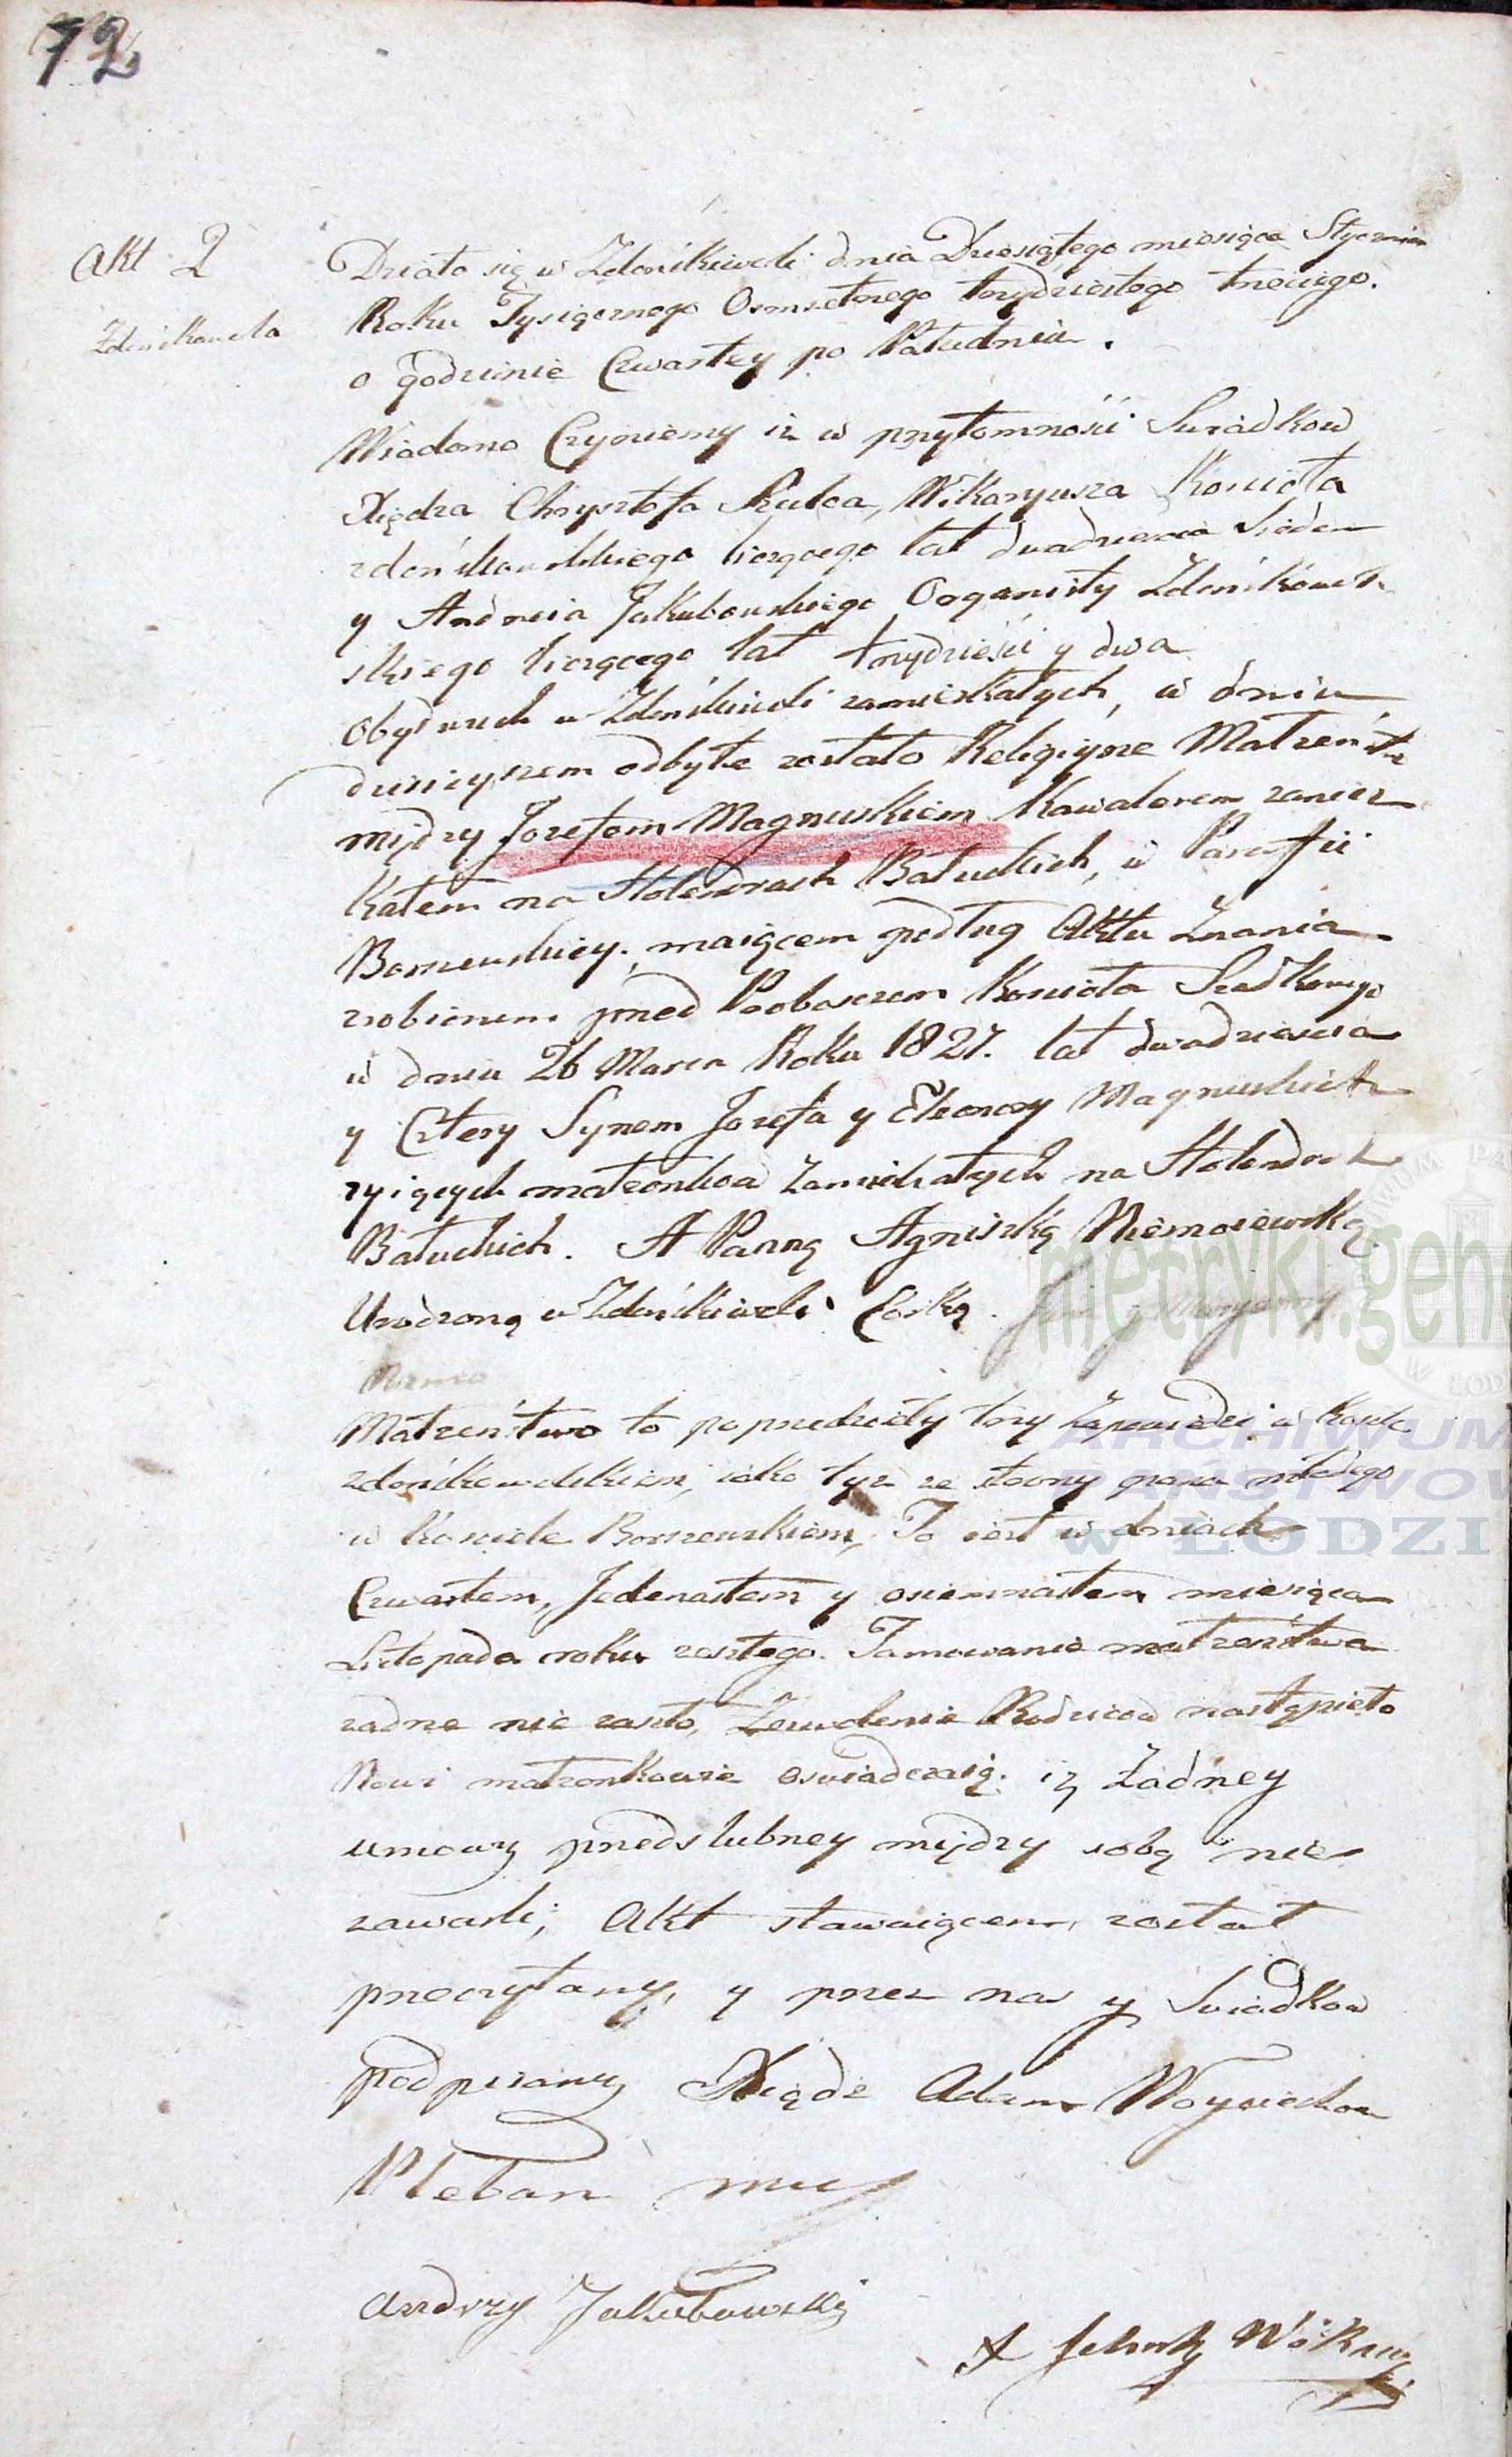 72
Akt 2
Zduńskawola
Działo się w Zduńskiwoli dnia Dziesiątego miesiąca Stycznia
Roku Tysiącznego Osmsetnego trzydziestego trzeciego.
o godzinie Czwartey po Południu.
Wiadomo Czyniemy iż w przytomności Swiadkow
Xiędza Chrysztofa Szulca, Wikaryusza Kościoła
zduńskowolskiego liczącego lat dwadzieścia siedem
y Andrzeia Jakubowskiego Organisty Zduńskowol
skiego liczącego lat trzydzieści y dwa
obydwuch w Zduńskiwoli zamieszkałych, w dniu
dzisieyszem odbyte zostało Religiyne Małzeństwo
między Jozefem Magnuskiem Kawalerem zamiesz
kałem na Holendrach Bałuckich, w Parafii
Borszewskiey, maiącem podług Aktu Znania
zrobionem przed Proboszczem Kościoła Szadkowskiego
w dniu 26 Marca Roku 1827. lat dwadzieścia
y Cztery Synem Jozefa y Eleonory Magnuskich
żyiących małżonkow Zamieszkałych na Holendrach
Bałuckich. A Panną Agniszką Niemoiewską
Urodzoną w Zduńskiwoli Corką. Jana y Maryanny
Niemo
Małzeństwo to poprzedziły trzy Zapowiedzi w Kosciele
zduńskowolskiem, iako tyż ze strony pana młodego
w Kosciele Borszewskiem, To iest w dniach
Czwartem, Jedenastem y osiemnastem miesiąca
Listopada roku zeszłego. Tamowanie małzeństwa
zadne nie zaszło, Zezwolenie Rodzicow nastąpieło
Nowi małzonkowie oswiadczaią. iż Żadney
umowy przedslubney między sobą nie
zawarli; Akt stawaiącem został
przeczytany, y przez nas y Swiadkow
podpisany Xiądz Adam Woyciechow
Pleban mp
Andrzy Jakubowski
X Schultz Wikary
metryki.gen
ARCHIWUM
PAŃSTWOW
W ŁODZI